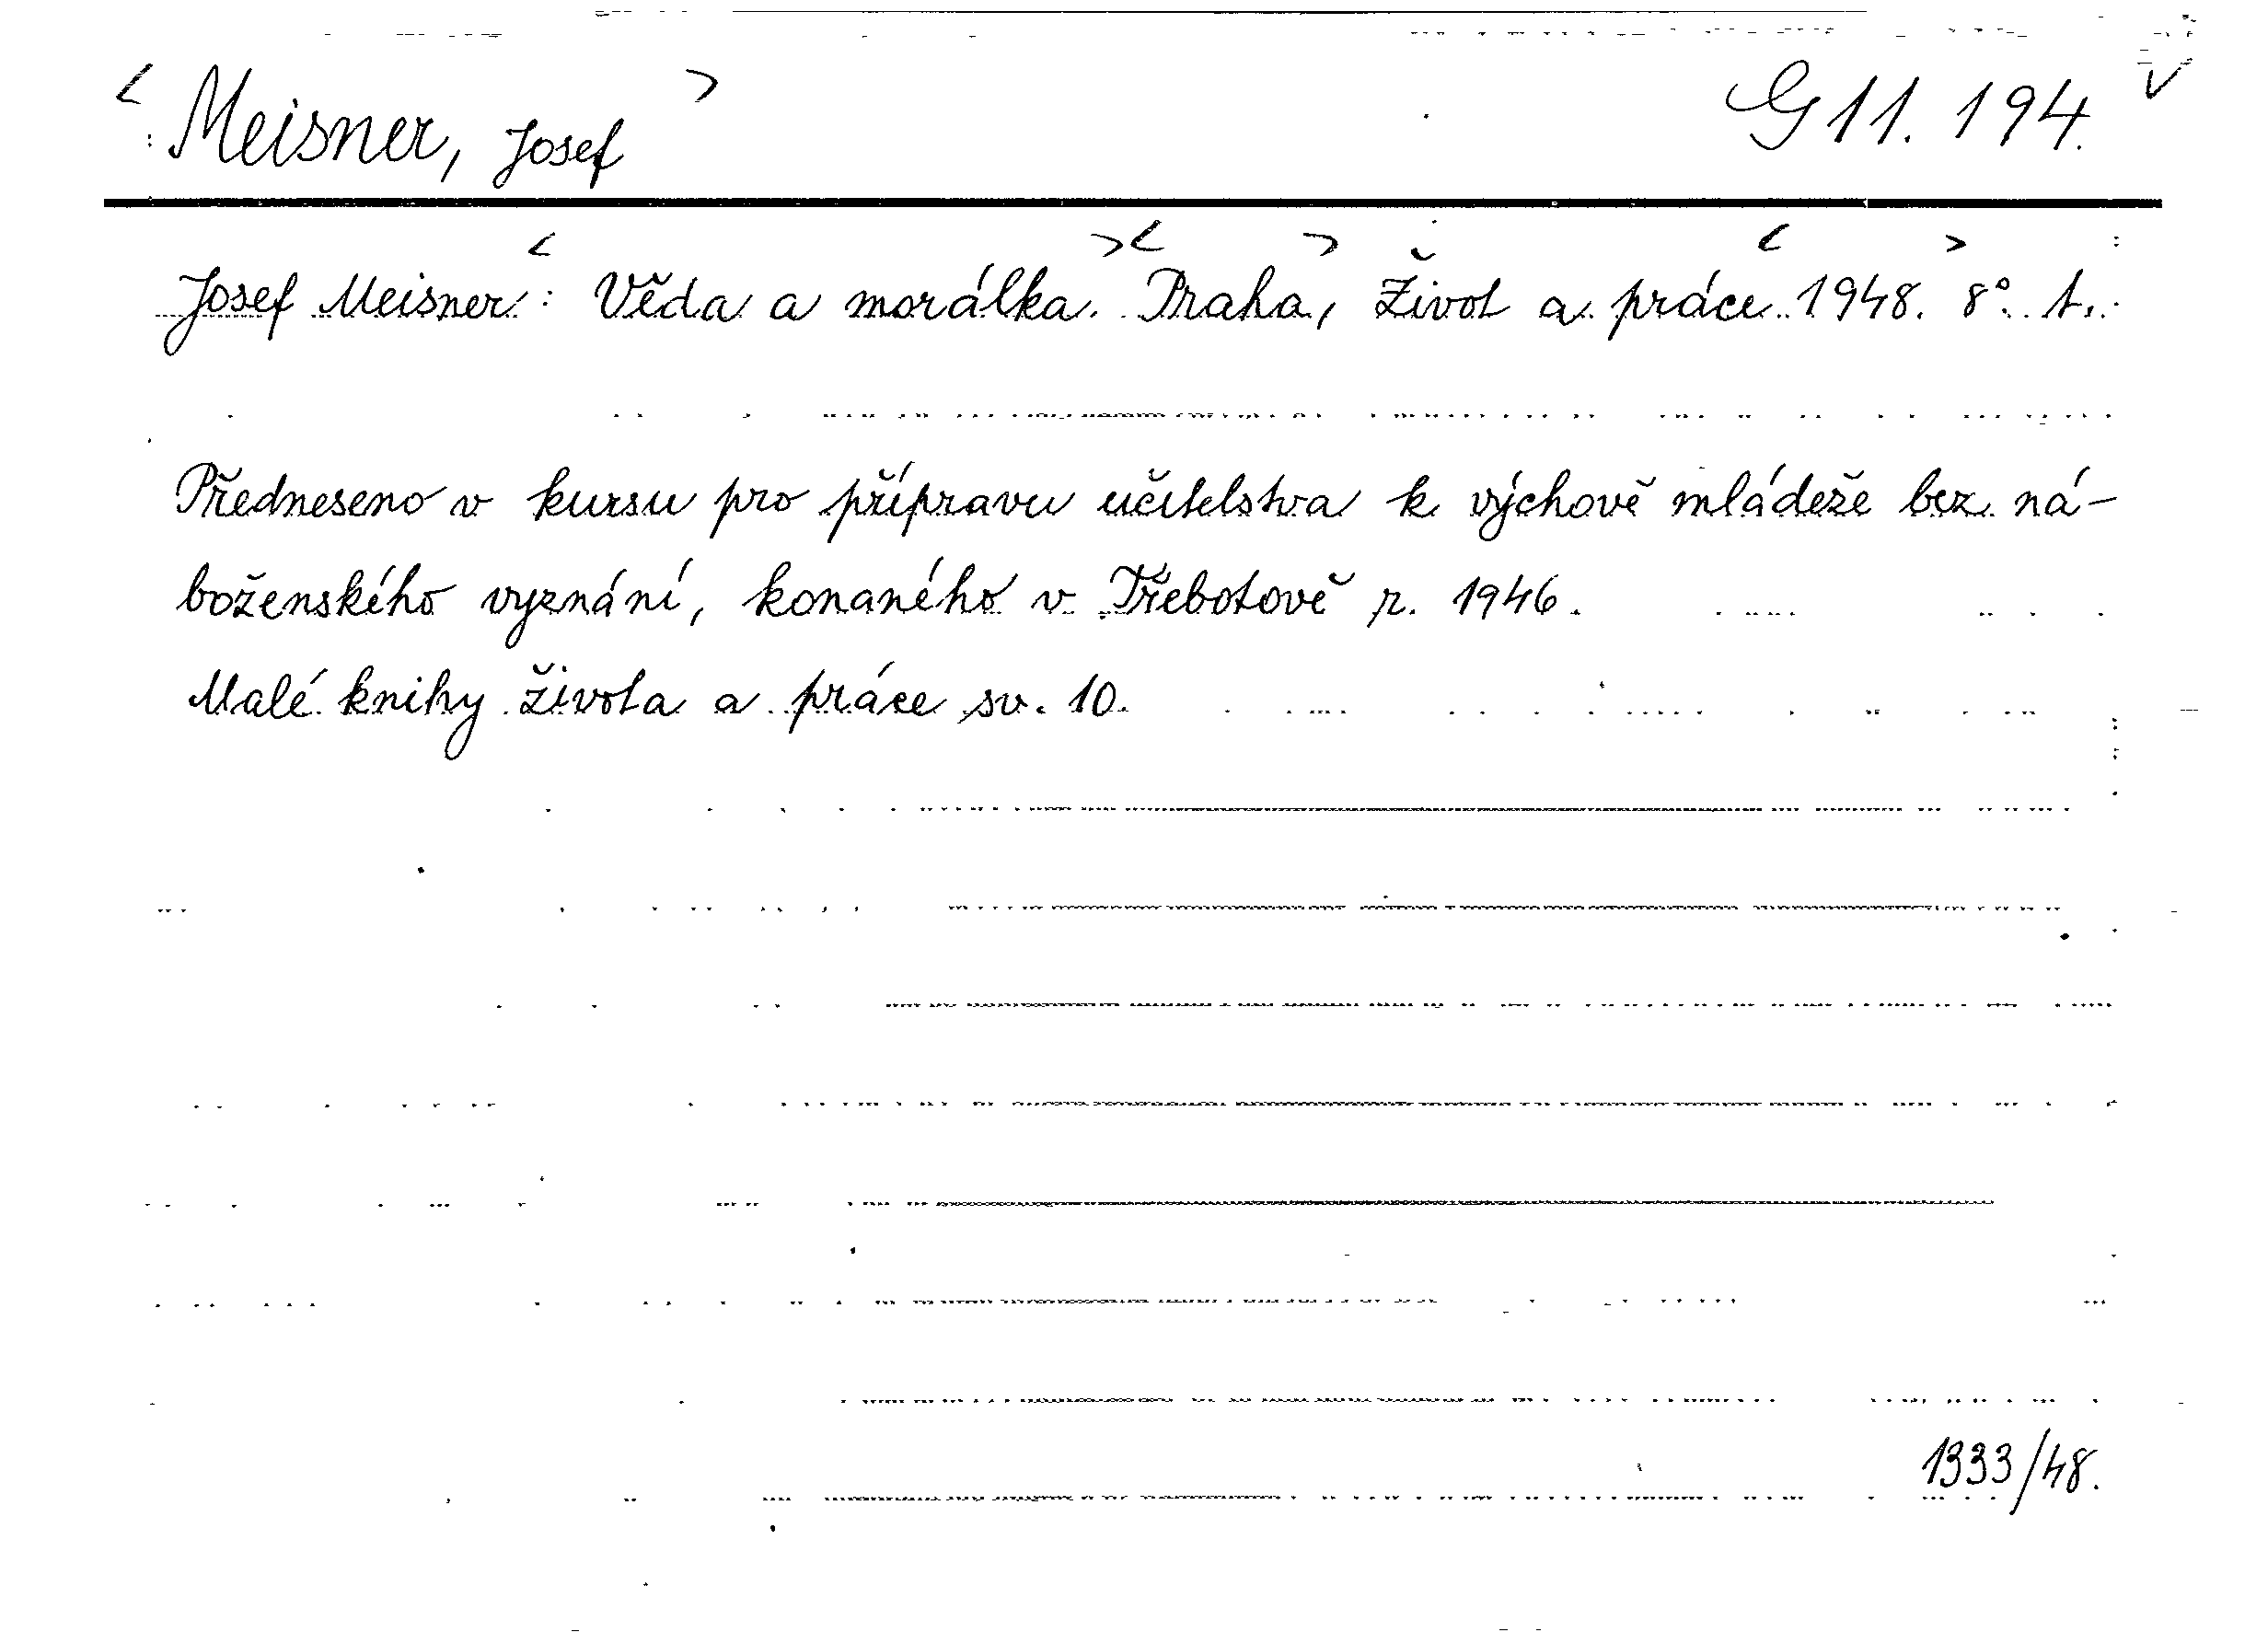 < Meisner, Josef > G 11. 194. ✓
Josef Meisner: <Věda a morálka.> <Praha>, Život a práce <1948.> 8°. t..
Předneseno v kursu pro přípravu učitelstva k výchově mládeže bez ná-
boženského vyznání, konaného v Třebotově r. 1946.
Malé knihy života a práce sv. 10.
1333/48.